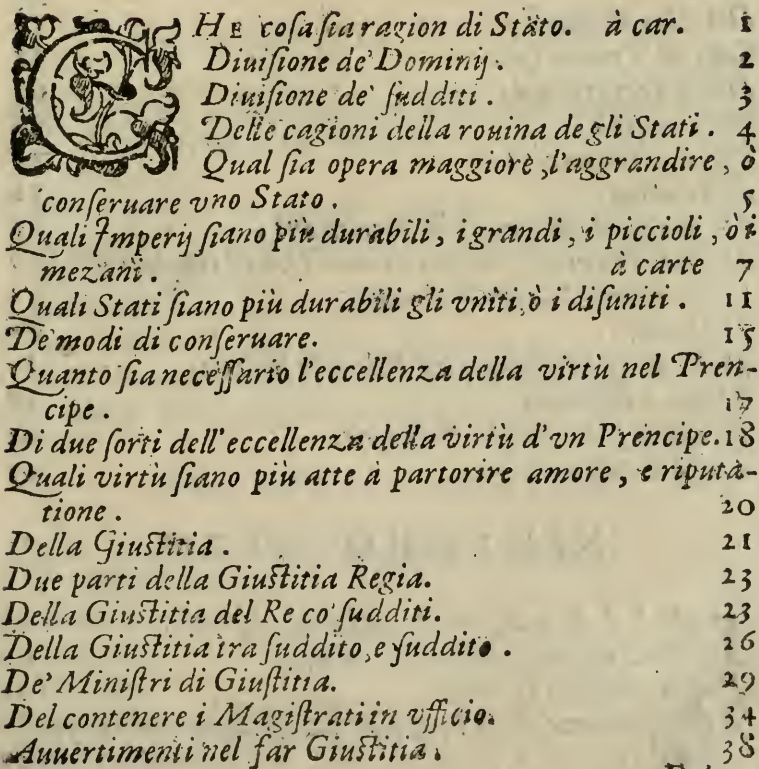 CHE coſa ſia ragion di Stato. à car. 1
Diuiſione de' Dominij. 2
Diuiſione de' ſudditi. 3
Delle cagioni della rouina degli Stati. 4
Qual ſia opera maggiore, l'aggrandire, ò
conſeruare vno Stato. 5
Quali Imperij ſiano più durabili, i grandi, i piccioli, ò i
mezani. à carte 7
Quali Stati ſiano più durabili gli vniti, ò i diſuniti. 11
De' modi di conſeruare. 15
Quanto ſia neceſſario l'eccellenza della virtù nel Pren-
cipe. 17
Di due ſorti dell'eccellenza della virtù d'vn Prencipe. 18
Quali virtù ſiano più atte à partorire amore, e riputa-
tione. 20
Della Giuſtitia. 21
Due parti della Giuſtitia Regia. 23
Della Giuſtitia del Re co' ſudditi. 23
Della Giuſtitia tra ſuddito, e ſuddito. 26
De' Miniſtri di Giuſtitia. 29
Del contenere i Magiſtrati in vfficio. 34
Auuertimenti nel far Giuſtitia. 38